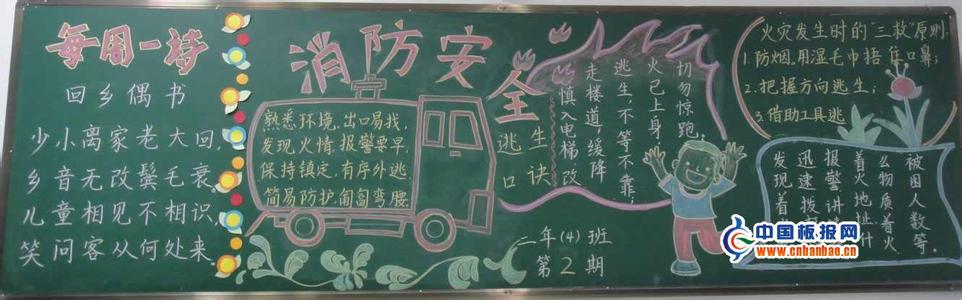 每周一诗
回乡偶书
少小离家老大回,
乡音无改鬓毛衰,
儿童相见不相识,
笑问客从何处来.
消防安全
熟悉环境,出口易找,
发现火情,报警要早,
保持镇定,有序外逃
简易防护,匍匐弯腰.
逃生
口诀
慎入电梯,改
走楼道,缓降
逃生,不等不靠;
火已上身,
切勿惊跑.
二年(4)班
第2期
火灾发生时的"三救"原则
1.防烟.用湿毛巾捂住口鼻;
2.把握方向逃生;
3.借助工具逃
发现着
迅速拨
报警讲
着火地址什
么物质着火
被困人数等.
中国板报网
www.cnbanbao.cn